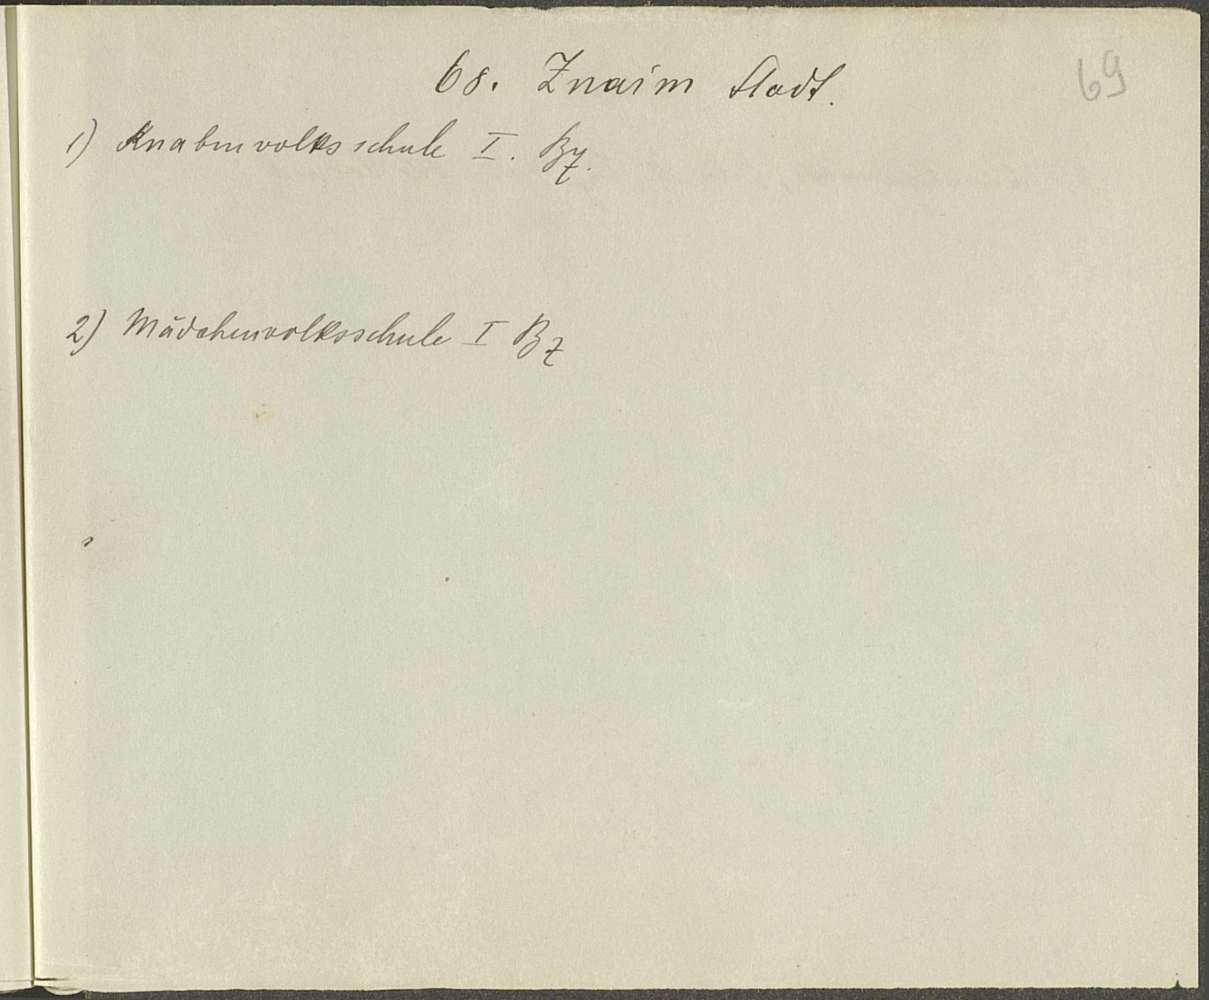 69
68. Znaim Stadt.
1) Knabenvolksschule I. Bz.
2) Mädchenvolksschule I Bz